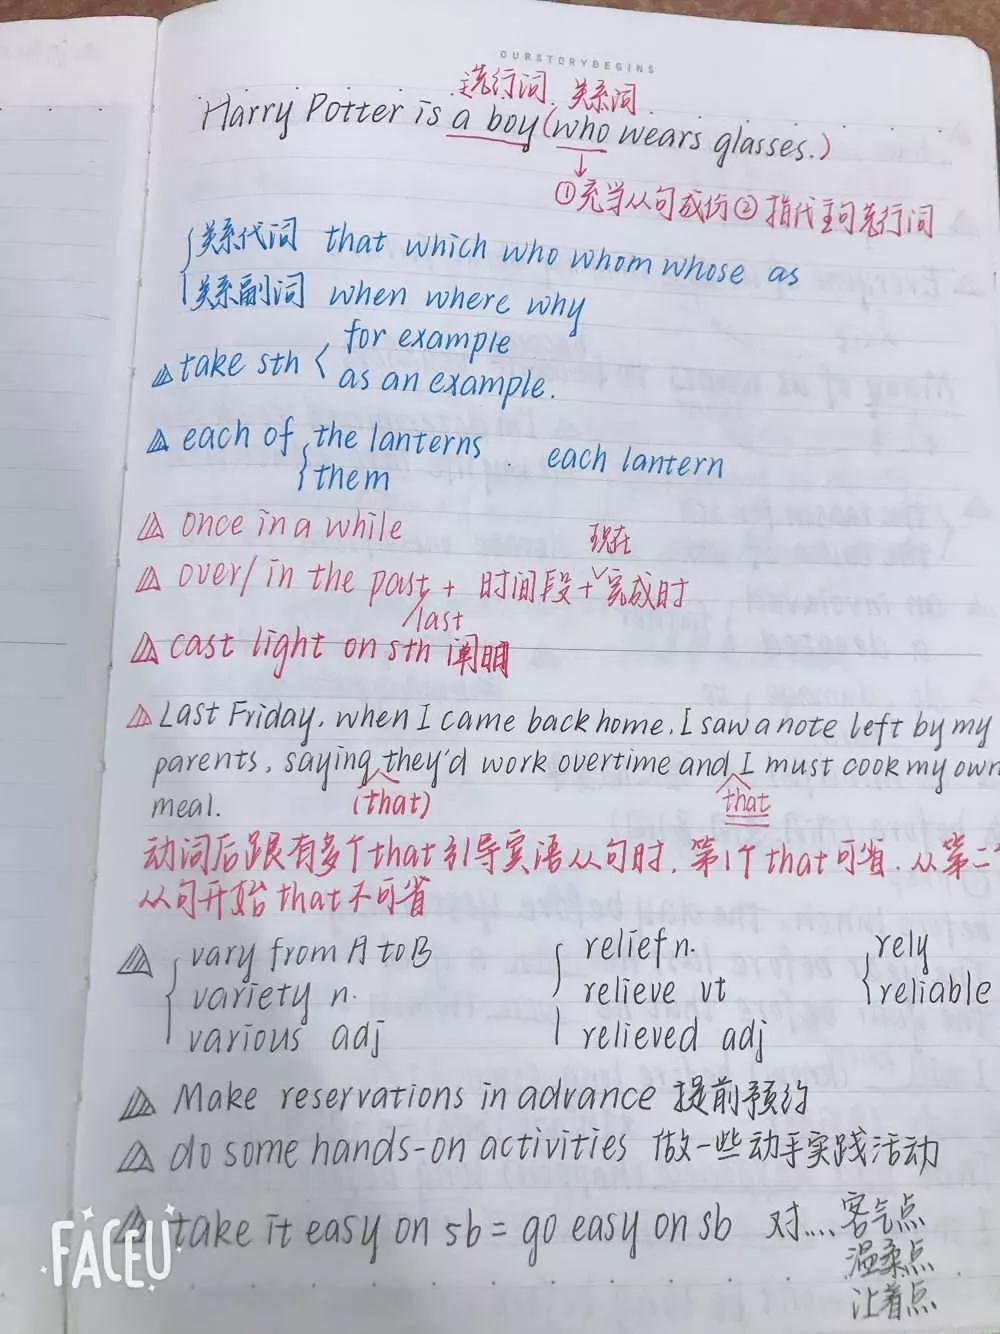 OURSTORYBEGINS
先行词 关系词
Harry Potter is a boy (who wears glasses.)
①充当从句成份 ② 指代主句先行词
关系代词 that which who whom whose as
关系副词 when where why
for example
take sth
as an example.
each of the lanterns . each lantern
them
once in a while
现在
over/in the past + 时间段 + 完成时
/last
cast light on sth 阐明
Last Friday, when I came back home, I saw a note left by my
parents, saying they'd work overtime and I must cook my own
meal. (that) that
动词后跟有多个that引导宾语从句时, 第1个that可省, 从第二个
从句开始that不可省
vary from A to B relief n. rely
variety n. relieve vt reliable
various adj relieved adj
Make reservations in advance 提前预约
do some hands-on activities 做一些动手实践活动
take it easy on sb = go easy on sb 对.... 客气点
温柔点
让着点
FACEU